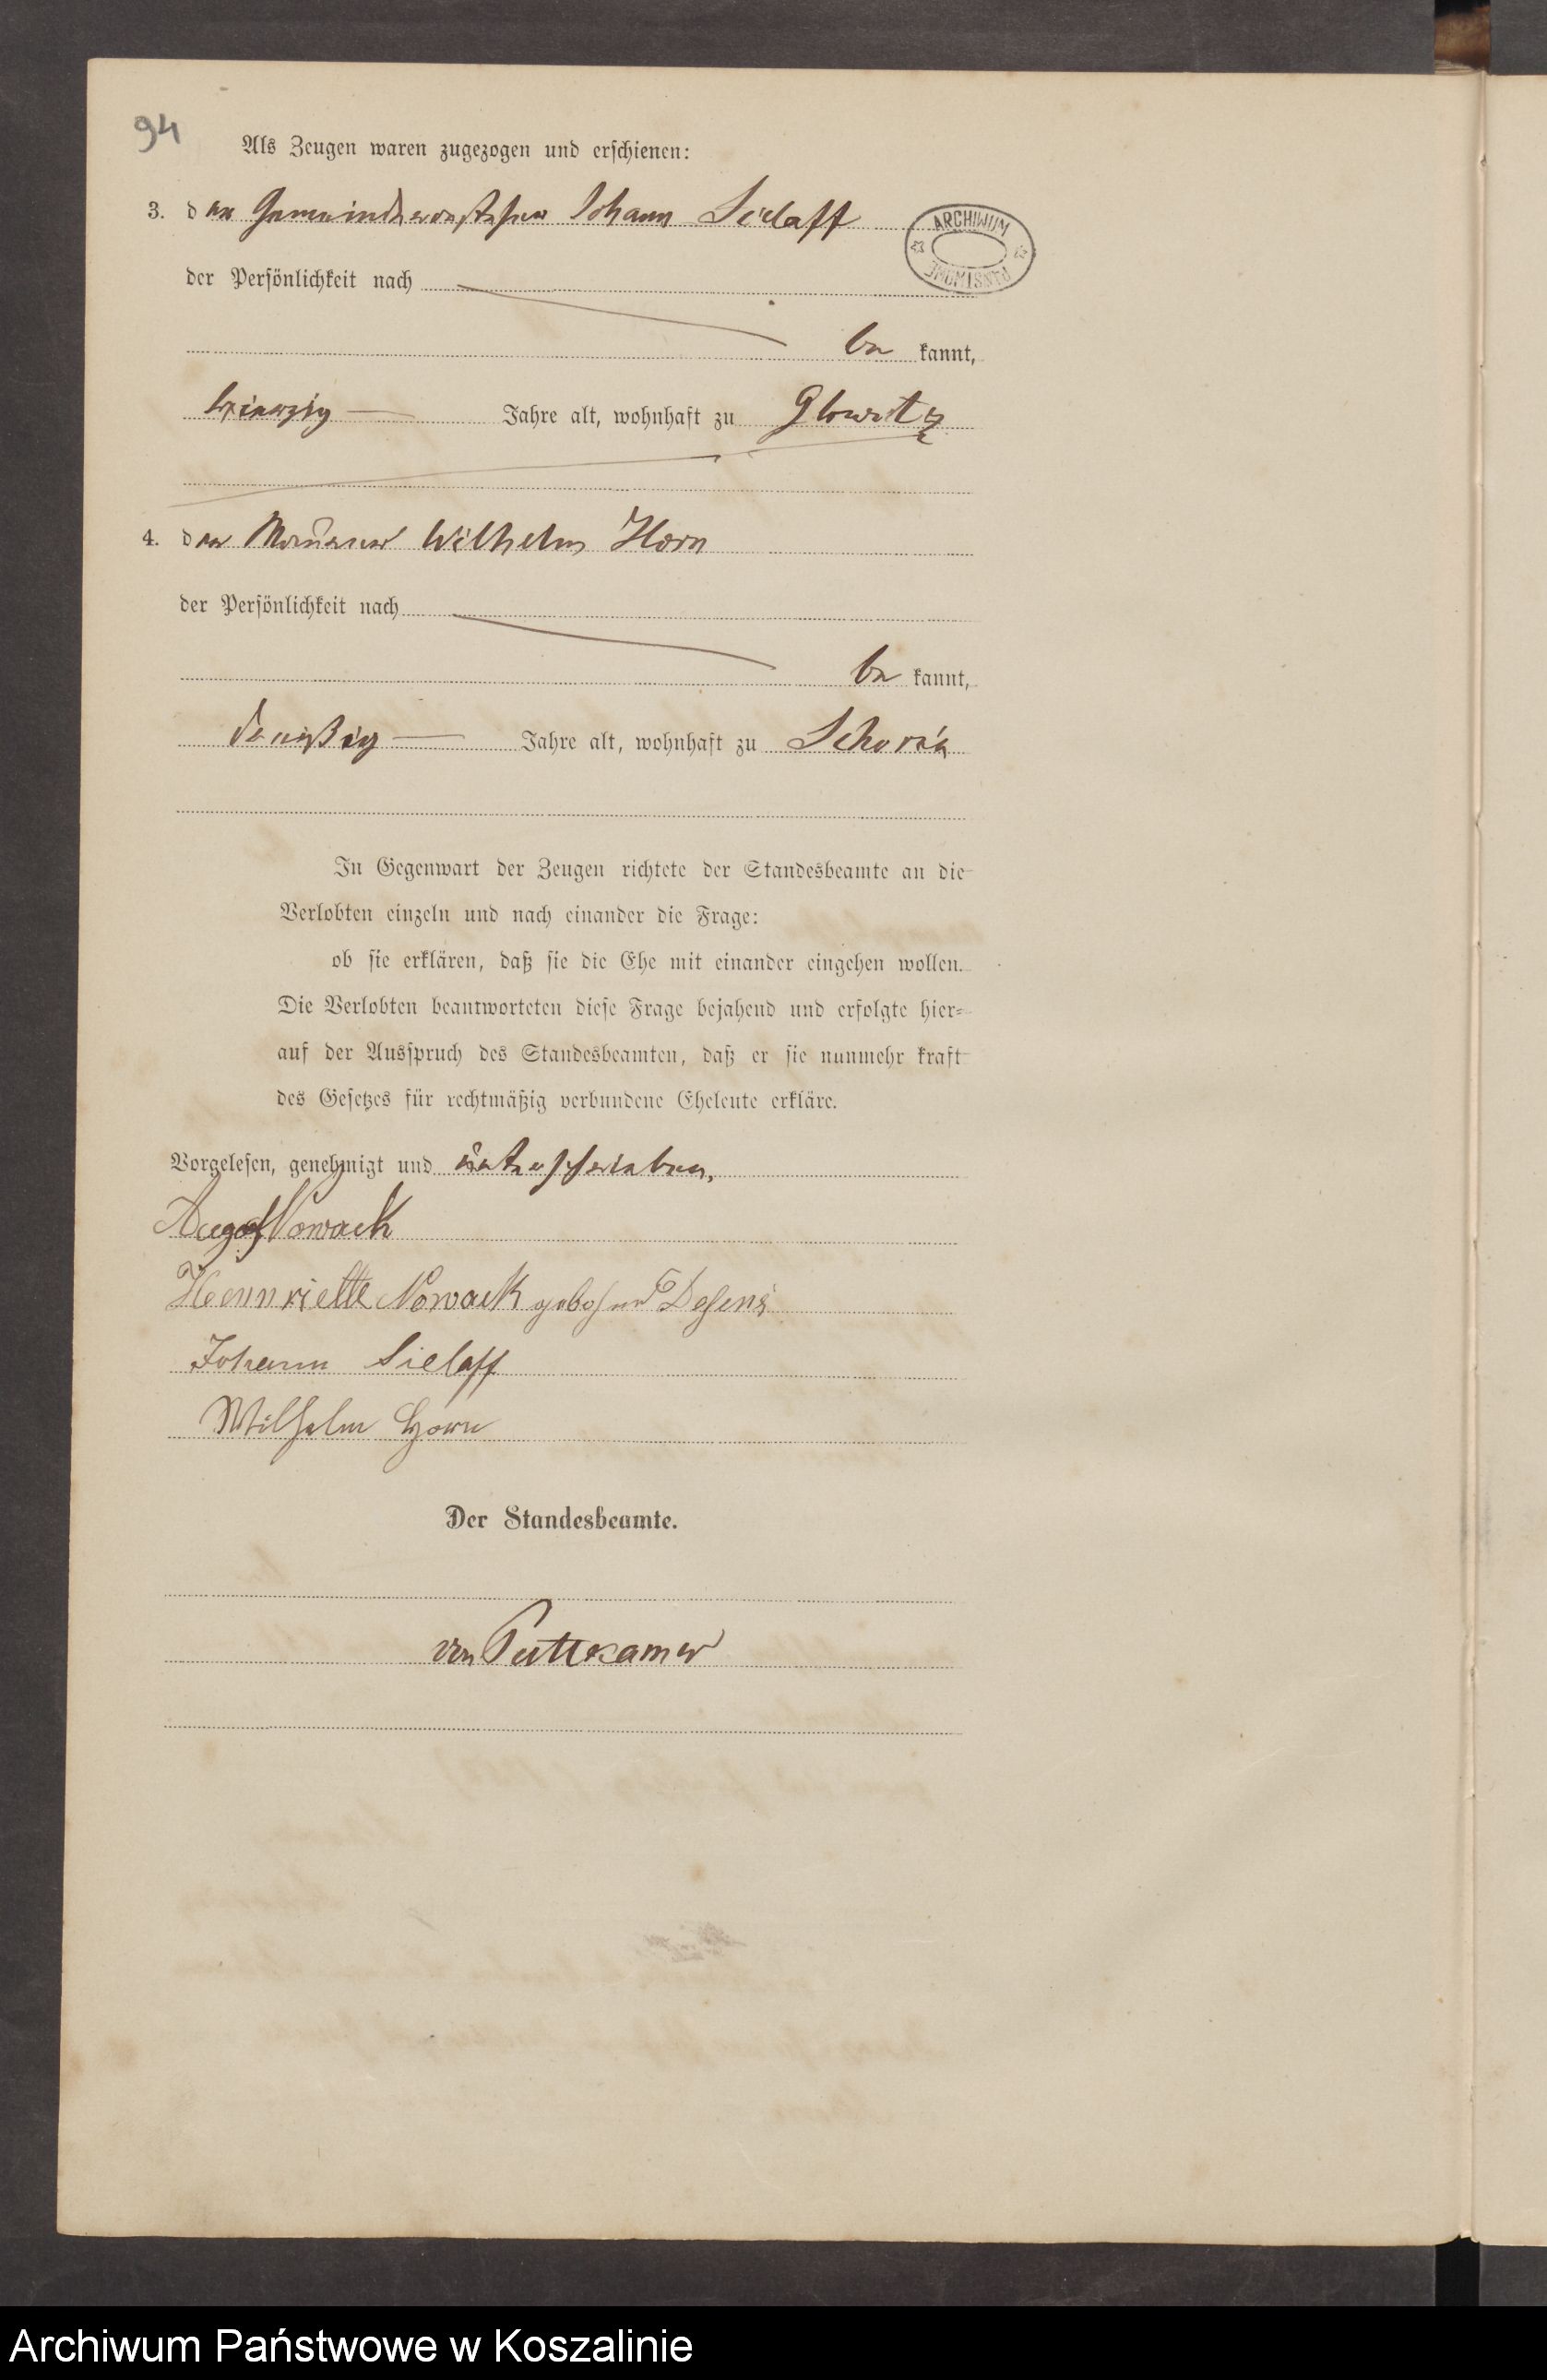 94
Als Zeugen waren zugezogen und erschienen:
3. der Gemeindevorsteher Johann Sielaff
ARCHIWUM PAŃSTWOWE
der Persönlichkeit nach
be kannt,
vierzig Jahre alt, wohnhaft zu Glowitz
4. der Maurer Wilhelm Horn
der Persönlichkeit nach
be kannt,
dreißig Jahre alt, wohnhaft zu Schorin
In Gegenwart der Zeugen richtete der Standesbeamte an die
Verlobten einzeln und nach einander die Frage:
ob sie erklären, daß sie die Ehe mit einander eingehen wollen.
Die Verlobten beantworteten diese Frage bejahend und erfolgte hier=
auf der Ausspruch des Standesbeamten, daß er sie nunmehr kraft
des Gesetzes für rechtmäßig verbundene Eheleute erkläre.
Vorgelesen, genehmigt und unterschrieben,
Nowack
Hennriette Nowack Desens
Johann Sielaff
Wilhelm Horn
Der Standesbeamte.
von Puttkamer
Archiwum Państwowe w Koszalinie